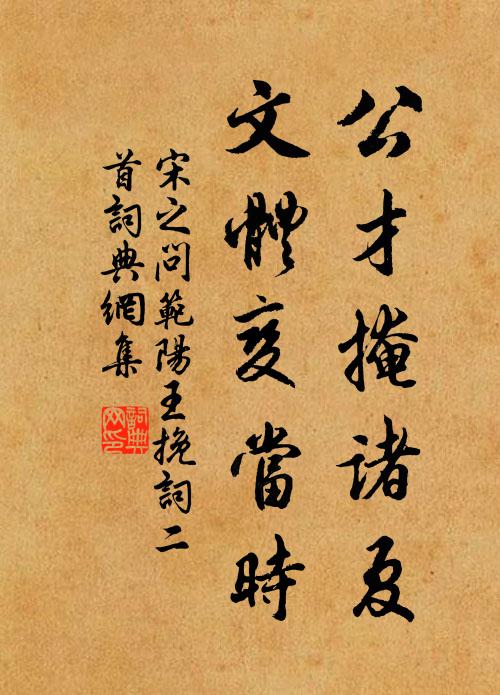 公才掩諸夏
文體變當時
宋之問範陽王挽詞二
首詞典網集
詞典
网印